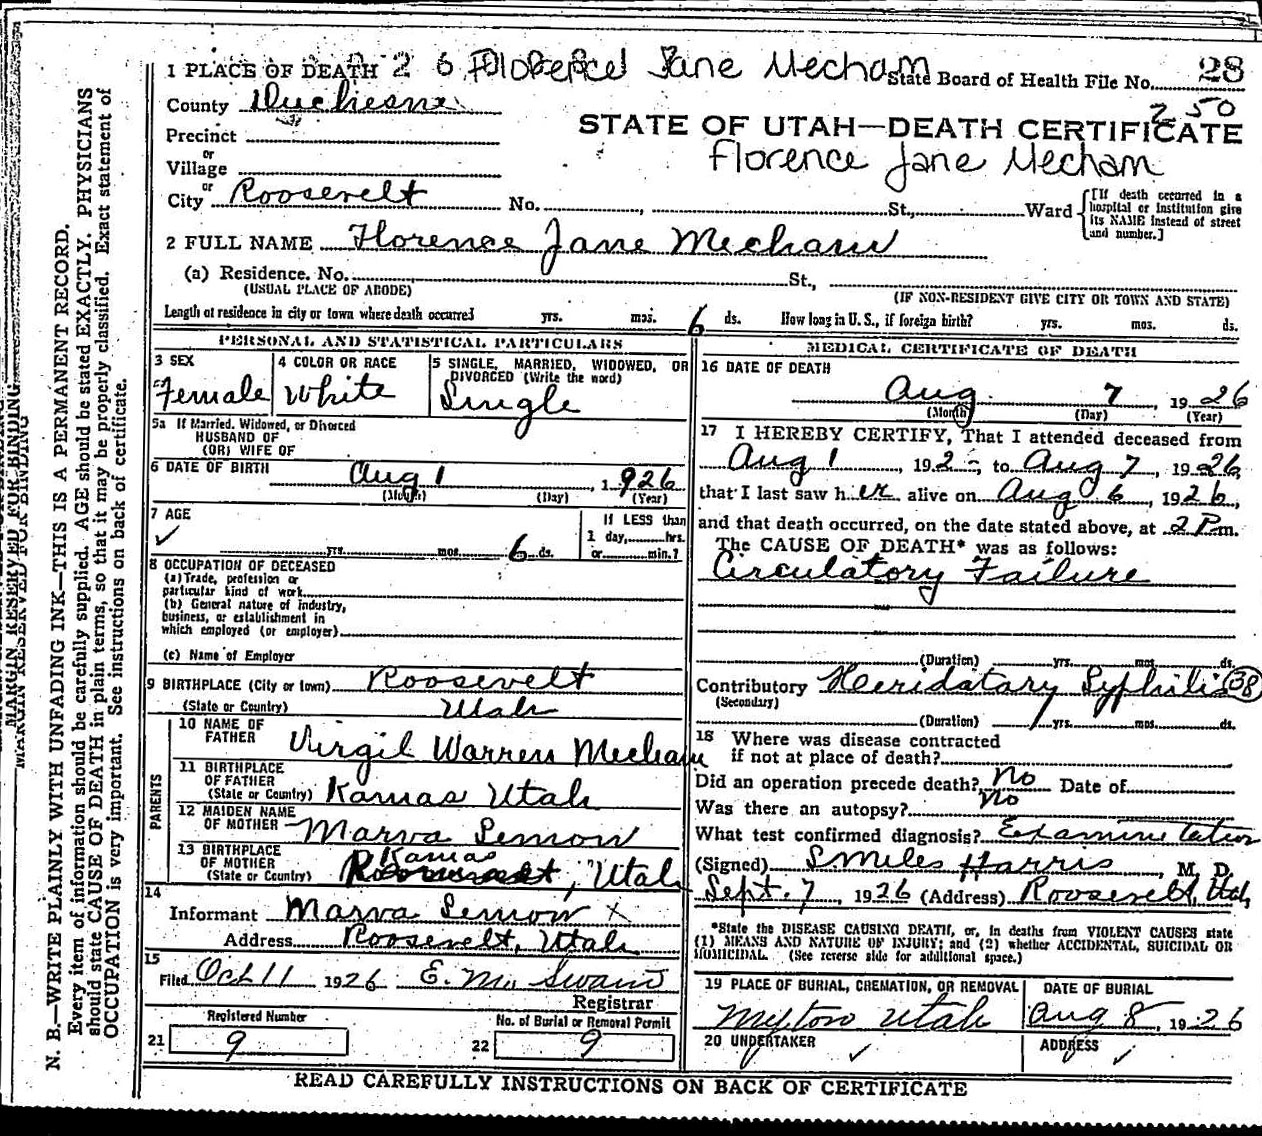 1 PLACE OF DEATH 2 6 Florence Jane Mecham State Board of Health File No. 28
County Duchesne 250
STATE OF UTAH—DEATH CERTIFICATE
Precinct
or
Village
Florence Jane Mecham
or
City Roosevelt No. , St., Ward {[If death occurred in a hospital or institution give its NAME instead of street and number.]
2 FULL NAME Florence Jane Mecham
(a) Residence. No. St.,
(USUAL PLACE OF ABODE) (IF NON-RESIDENT GIVE CITY OR TOWN AND STATE)
Length of residence in city or town where death occurred yrs. mos. 6 ds. How long in U.S., if foreign birth? yrs. mos. ds.
PERSONAL AND STATISTICAL PARTICULARS
3 SEX
Female
4 COLOR OR RACE
White
5 SINGLE, MARRIED, WIDOWED, OR
DIVORCED (Write the word)
Single
5a If Married, Widowed, or Divorced
HUSBAND OF
(OR) WIFE OF
6 DATE OF BIRTH Aug 1, 1926
(Month) (Day) (Year)
7 AGE ✓
yrs. mos. 6 ds.
If LESS than
1 day, hrs.
or min.?
8 OCCUPATION OF DECEASED
(a) Trade, profession or
particular kind of work
(b) General nature of industry,
business, or establishment in
which employed (or employer)
(c) Name of Employer
9 BIRTHPLACE (City or town) Roosevelt
(State or Country) Utah
PARENTS
10 NAME OF
FATHER Virgil Warren Mecham
11 BIRTHPLACE
OF FATHER
(State or Country) Kamas Utah
12 MAIDEN NAME
OF MOTHER Marva Lemon
13 BIRTHPLACE
OF MOTHER Kamas
(State or Country) Roosevelt, Utah
14
Informant Marva Lemon X
Address Roosevelt, Utah
15
Filed Oct 11 1926
Registrar
Registered Number
21 9
No. of Burial or Removal Permit
22 9
MEDICAL CERTIFICATE OF DEATH
16 DATE OF DEATH
Aug. 7, 1926
(Month) (Day) (Year)
17 I HEREBY CERTIFY, That I attended deceased from
Aug 1, 192-, to Aug 7, 1926,
that I last saw her alive on Aug 6, 1926,
and that death occurred, on the date stated above, at 2 P m.
The CAUSE OF DEATH* was as follows:
Circulatory Failure
(Duration) yrs. mos. ds.
Contributory Heridatary Syphilis 38
(Secondary)
(Duration) yrs. mos. ds.
18 Where was disease contracted
if not at place of death?
Did an operation precede death? No Date of
Was there an autopsy? No
What test confirmed diagnosis?
(Signed) Smiles Harris, M. D.
Sept. 7, 1926 (Address) Roosevelt, Utah
*State the DISEASE CAUSING DEATH, or, in deaths from VIOLENT CAUSES state
(1) MEANS AND NATURE OF INJURY; and (2) whether ACCIDENTAL, SUICIDAL OR
HOMICIDAL. (See reverse side for additional space.)
19 PLACE OF BURIAL, CREMATION, OR REMOVAL
Myton Utah
DATE OF BURIAL
Aug 8, 1926
20 UNDERTAKER ✓
ADDRESS ✓
READ CAREFULLY INSTRUCTIONS ON BACK OF CERTIFICATE
MARGIN RESERVED FOR BINDING
N. B.—WRITE PLAINLY WITH UNFADING INK—THIS IS A PERMANENT RECORD.
Every item of information should be carefully supplied. AGE should be stated EXACTLY. PHYSICIANS
should state CAUSE OF DEATH in plain terms, so that it may be properly classified. Exact statement of
OCCUPATION is very important. See instructions on back of certificate.